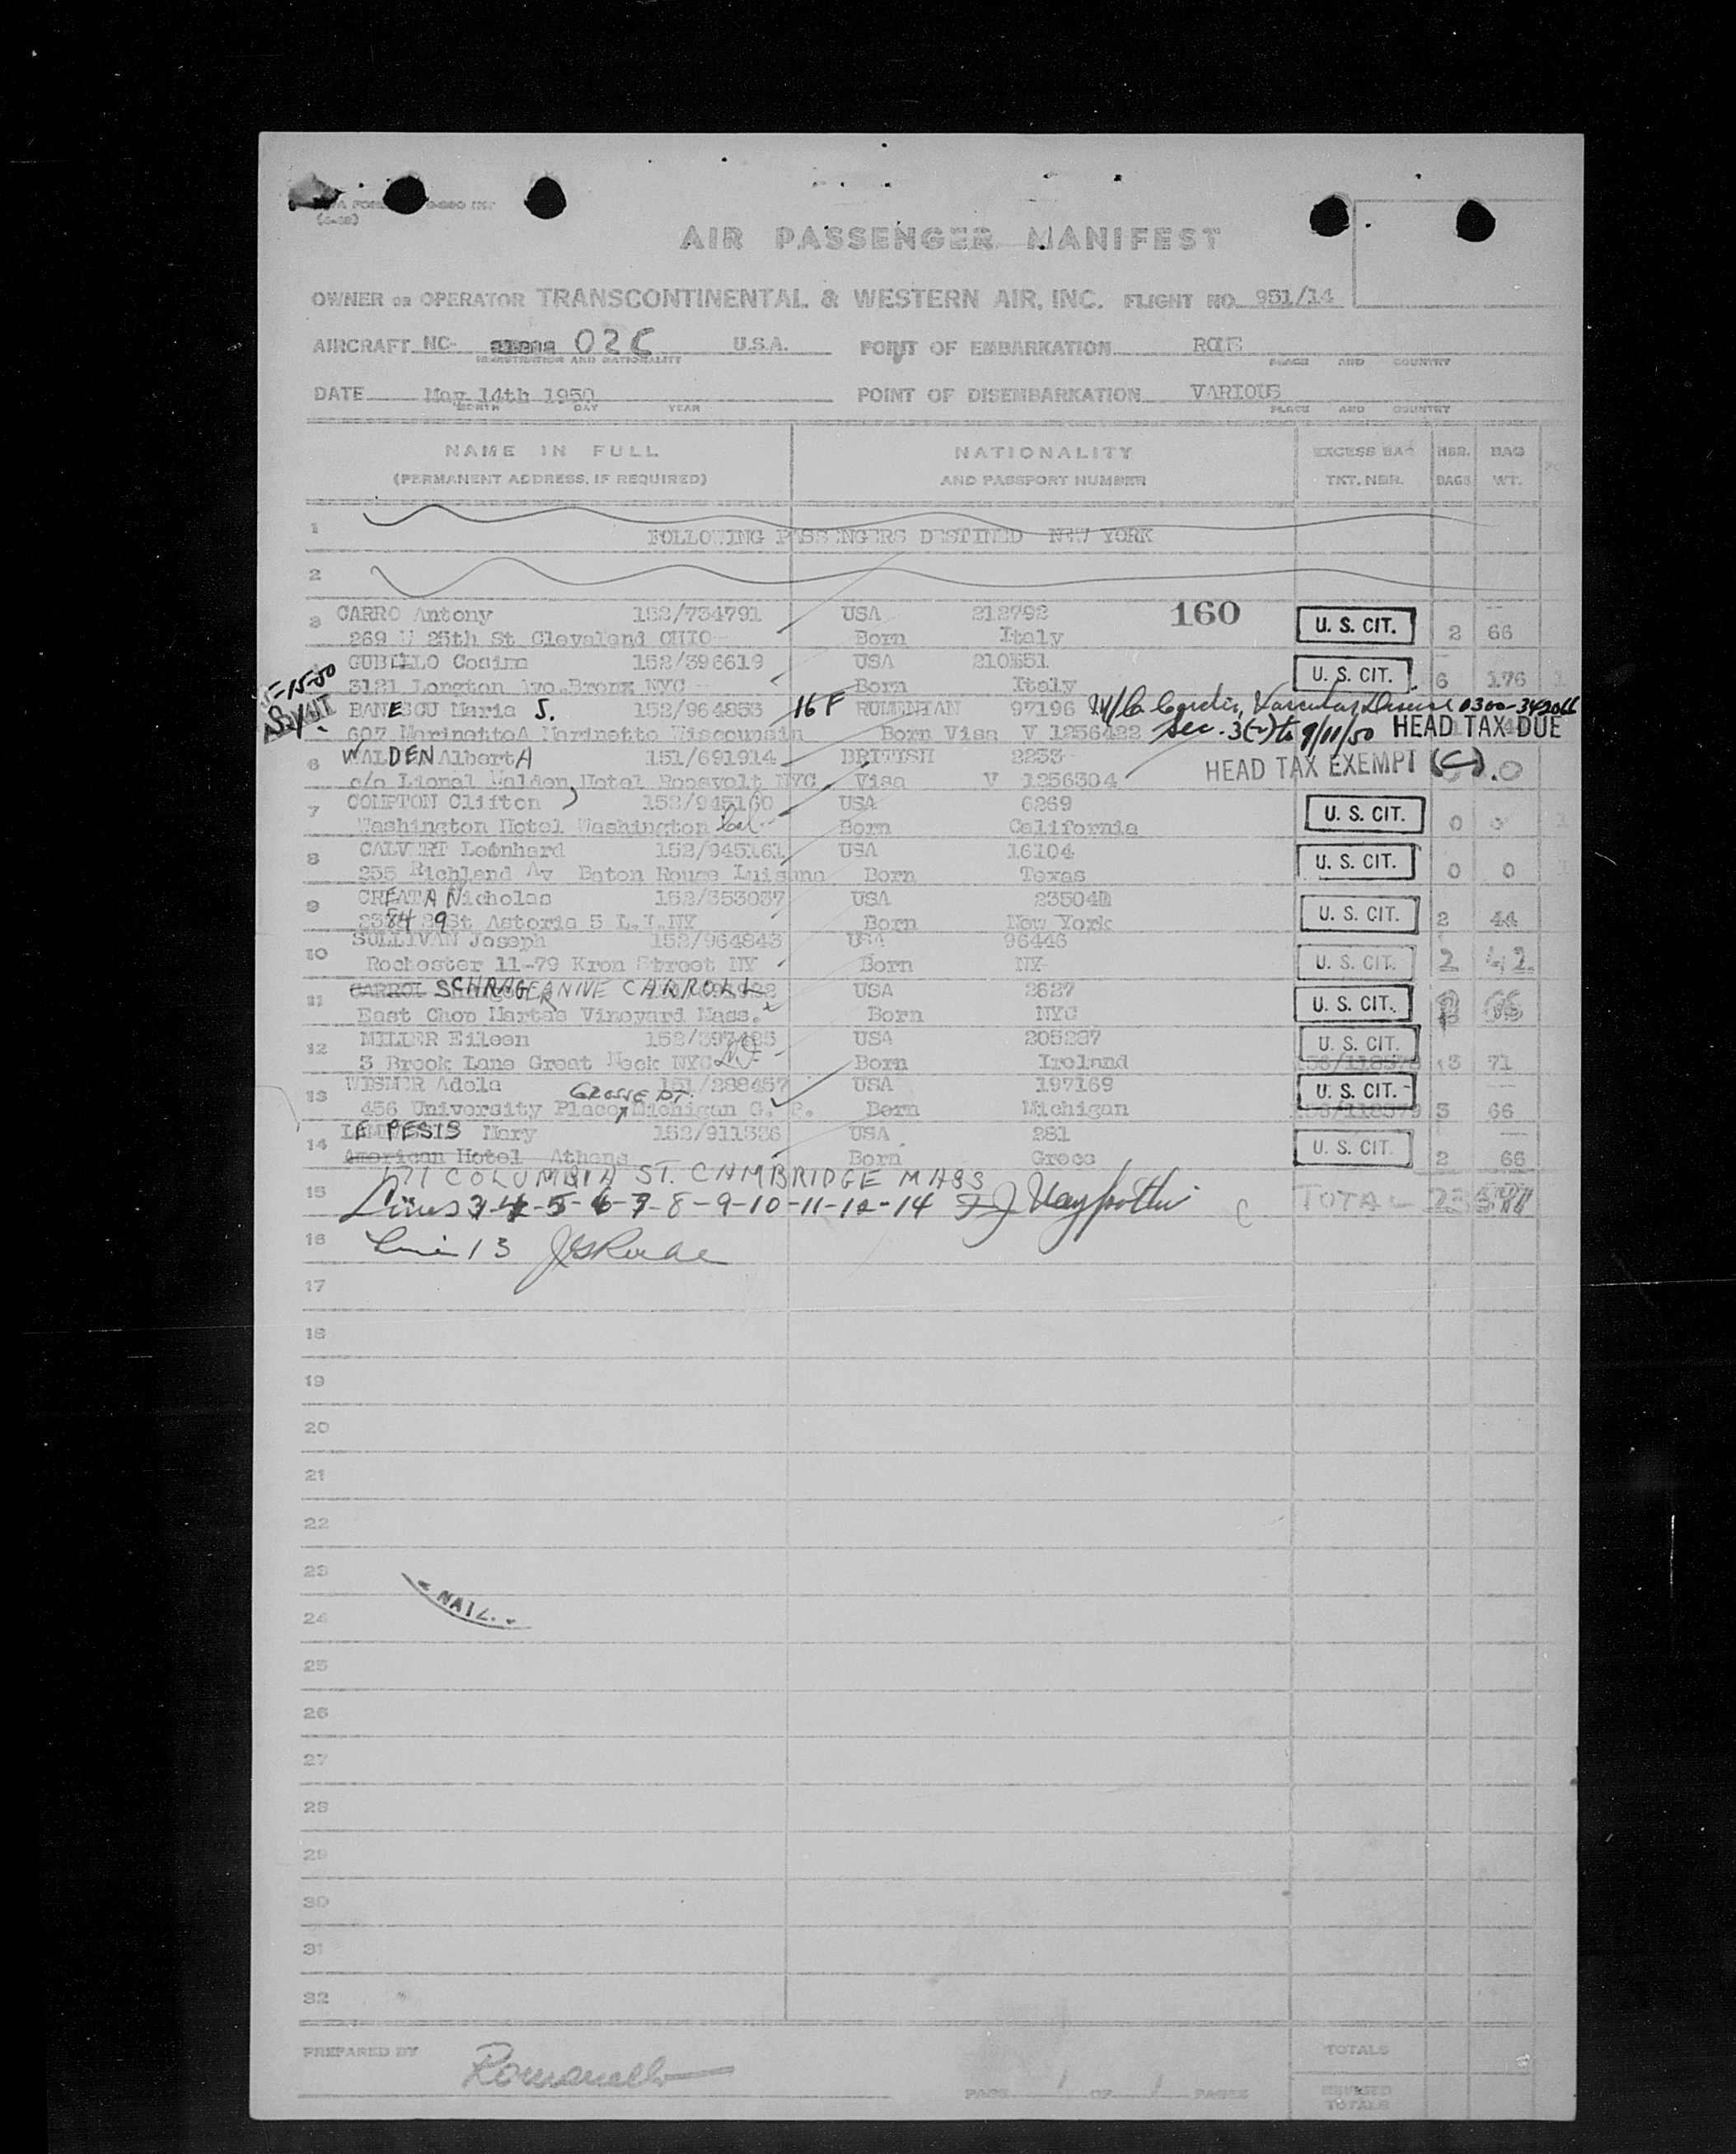 (6-48)
AIR PASSENGER MANIFEST
OWNER OR OPERATOR TRANSCONTINENTAL & WESTERN AIR, INC. FLIGHT NO. 951/14
AIRCRAFT NC- 02C U.S.A. POINT OF EMBARKATION ROME
REGISTRATION AND NATIONALITY PLACE AND COUNTRY
DATE May 14th 1950 POINT OF DISEMBARKATION VARIOUS
MONTH DAY YEAR PLACE AND COUNTRY
NAME IN FULL NATIONALITY EXCESS BAG NBR. BAG
(PERMANENT ADDRESS, IF REQUIRED) AND PASSPORT NUMBER TKT. NBR. BAGS WT.
1 FOLLOWING PASSENGERS DESTINED NEW YORK
2
3 CARRO Antony 152/734791 USA 212792 160 U. S. CIT.
269 W 25th St Clevaland OHIO Born Italy 2 66
GUBELLO Cosimo 152/396619 USA U. S. CIT.
3121 Longton Ave.Bronx NYC Born Italy 6 176
5-15-50
BANESCU Maria S. 152/964853 16 F RUMENIAN 97196 Cardio, Vascular Disease 0300-342066
607 MarinettoA Marinetto Wisconsin Born Visa V 1256422 Sec. 3(2) to 9/11/50 HEAD TAX DUE
6 WALDEN Albert A 151/691914 BRITISH 2233 HEAD TAX EXEMPT (C)
c/o Lionel Walden Hotel Roosvolt NYC Visa V 1256304 .0
7 COMPTON Clifton 152/945160 USA 6269 U. S. CIT.
Washington Hotel Washington Born California 0
8 CALVERT Leonhard 152/945161 USA 16104 U. S. CIT.
235 Richland Av Baton Rouge Luisana Born Texas 0 0
9 CREATA Nicholas 152/353037 USA 23504 U. S. CIT.
St Astoria 5 L.I.NY Born New York 2 44
10 SULLIVAN Joseph 152/964843 USA 96446 U. S. CIT.
Rochester 11-79 Kron Street NY Born NY 2 42
11 CARROL SCHRAGER ANNE CARROLL USA 2627 U. S. CIT.
East Chop Martas Vineyard Mass. Born NYC
12 MILLER Eileen 152/397485 USA 205287 U. S. CIT.
3 Brook Lane Great Neck NYC Born Ireland 3 71
13 WISMER Adela 151/288457 USA 197169 U. S. CIT.
GROSSE PT.
456 University Place Michigan G. P. Born Michigan 156/118579 3 66
14 LE PESIS Mary 152/911386 USA 281 U. S. CIT.
American Hotel Athens Born Grece 2 66
171 COLUMBIA ST. CAMBRIDGE MASS
15 Lines 3-4-5-6-7-8-9-10-11-12-14 TOTAL
16 Line 13
17
18
19
20
21
22
23
24 NATZ.
25
26
27
28
29
30
31
32
PREPARED BY Romanello PAGE 1 OF 1 PAGES TOTALS
REVISED
TOTALS